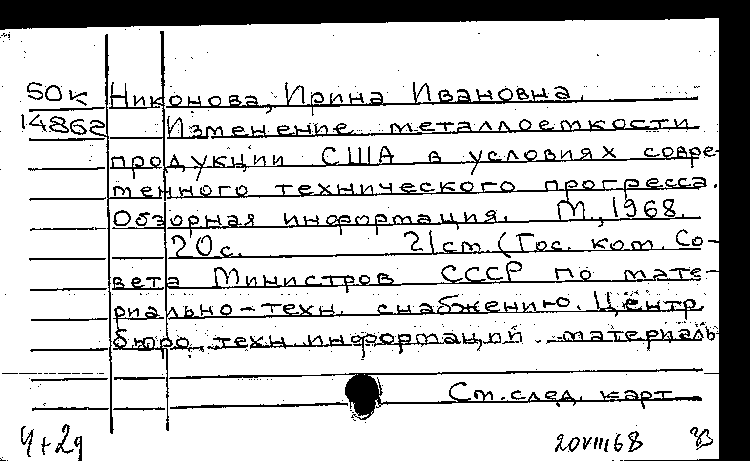 SОк Никонова, Ирина Ивановна.
14862 Изменение металлоемкости
продукции США в условиях совре-
менного технического прогресса.
Обзорная информация. М., 1968.
20с. 21см. (Гос. ком. Со-
вета Министров СССР по мате-
риально-техн. снабжению. Центр.
бюро техн. информации материаль-
См. след. карт
4+2д 20VIII68 33